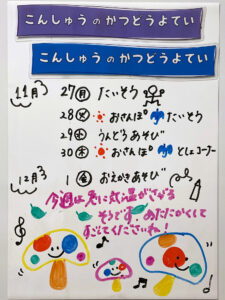 こんしゅうのかつどうよてい
こんしゅうのかつどうよてい
11月
27(月) たいそう
28(火) おさんぽ たいそう
29(水) うんどうあそび
30(木) おさんぽ としょコーナー
12月
1(金) おえかきあそび
今週は急に気温がさがる
そうです。あたたかくして
すごしてくださいね!